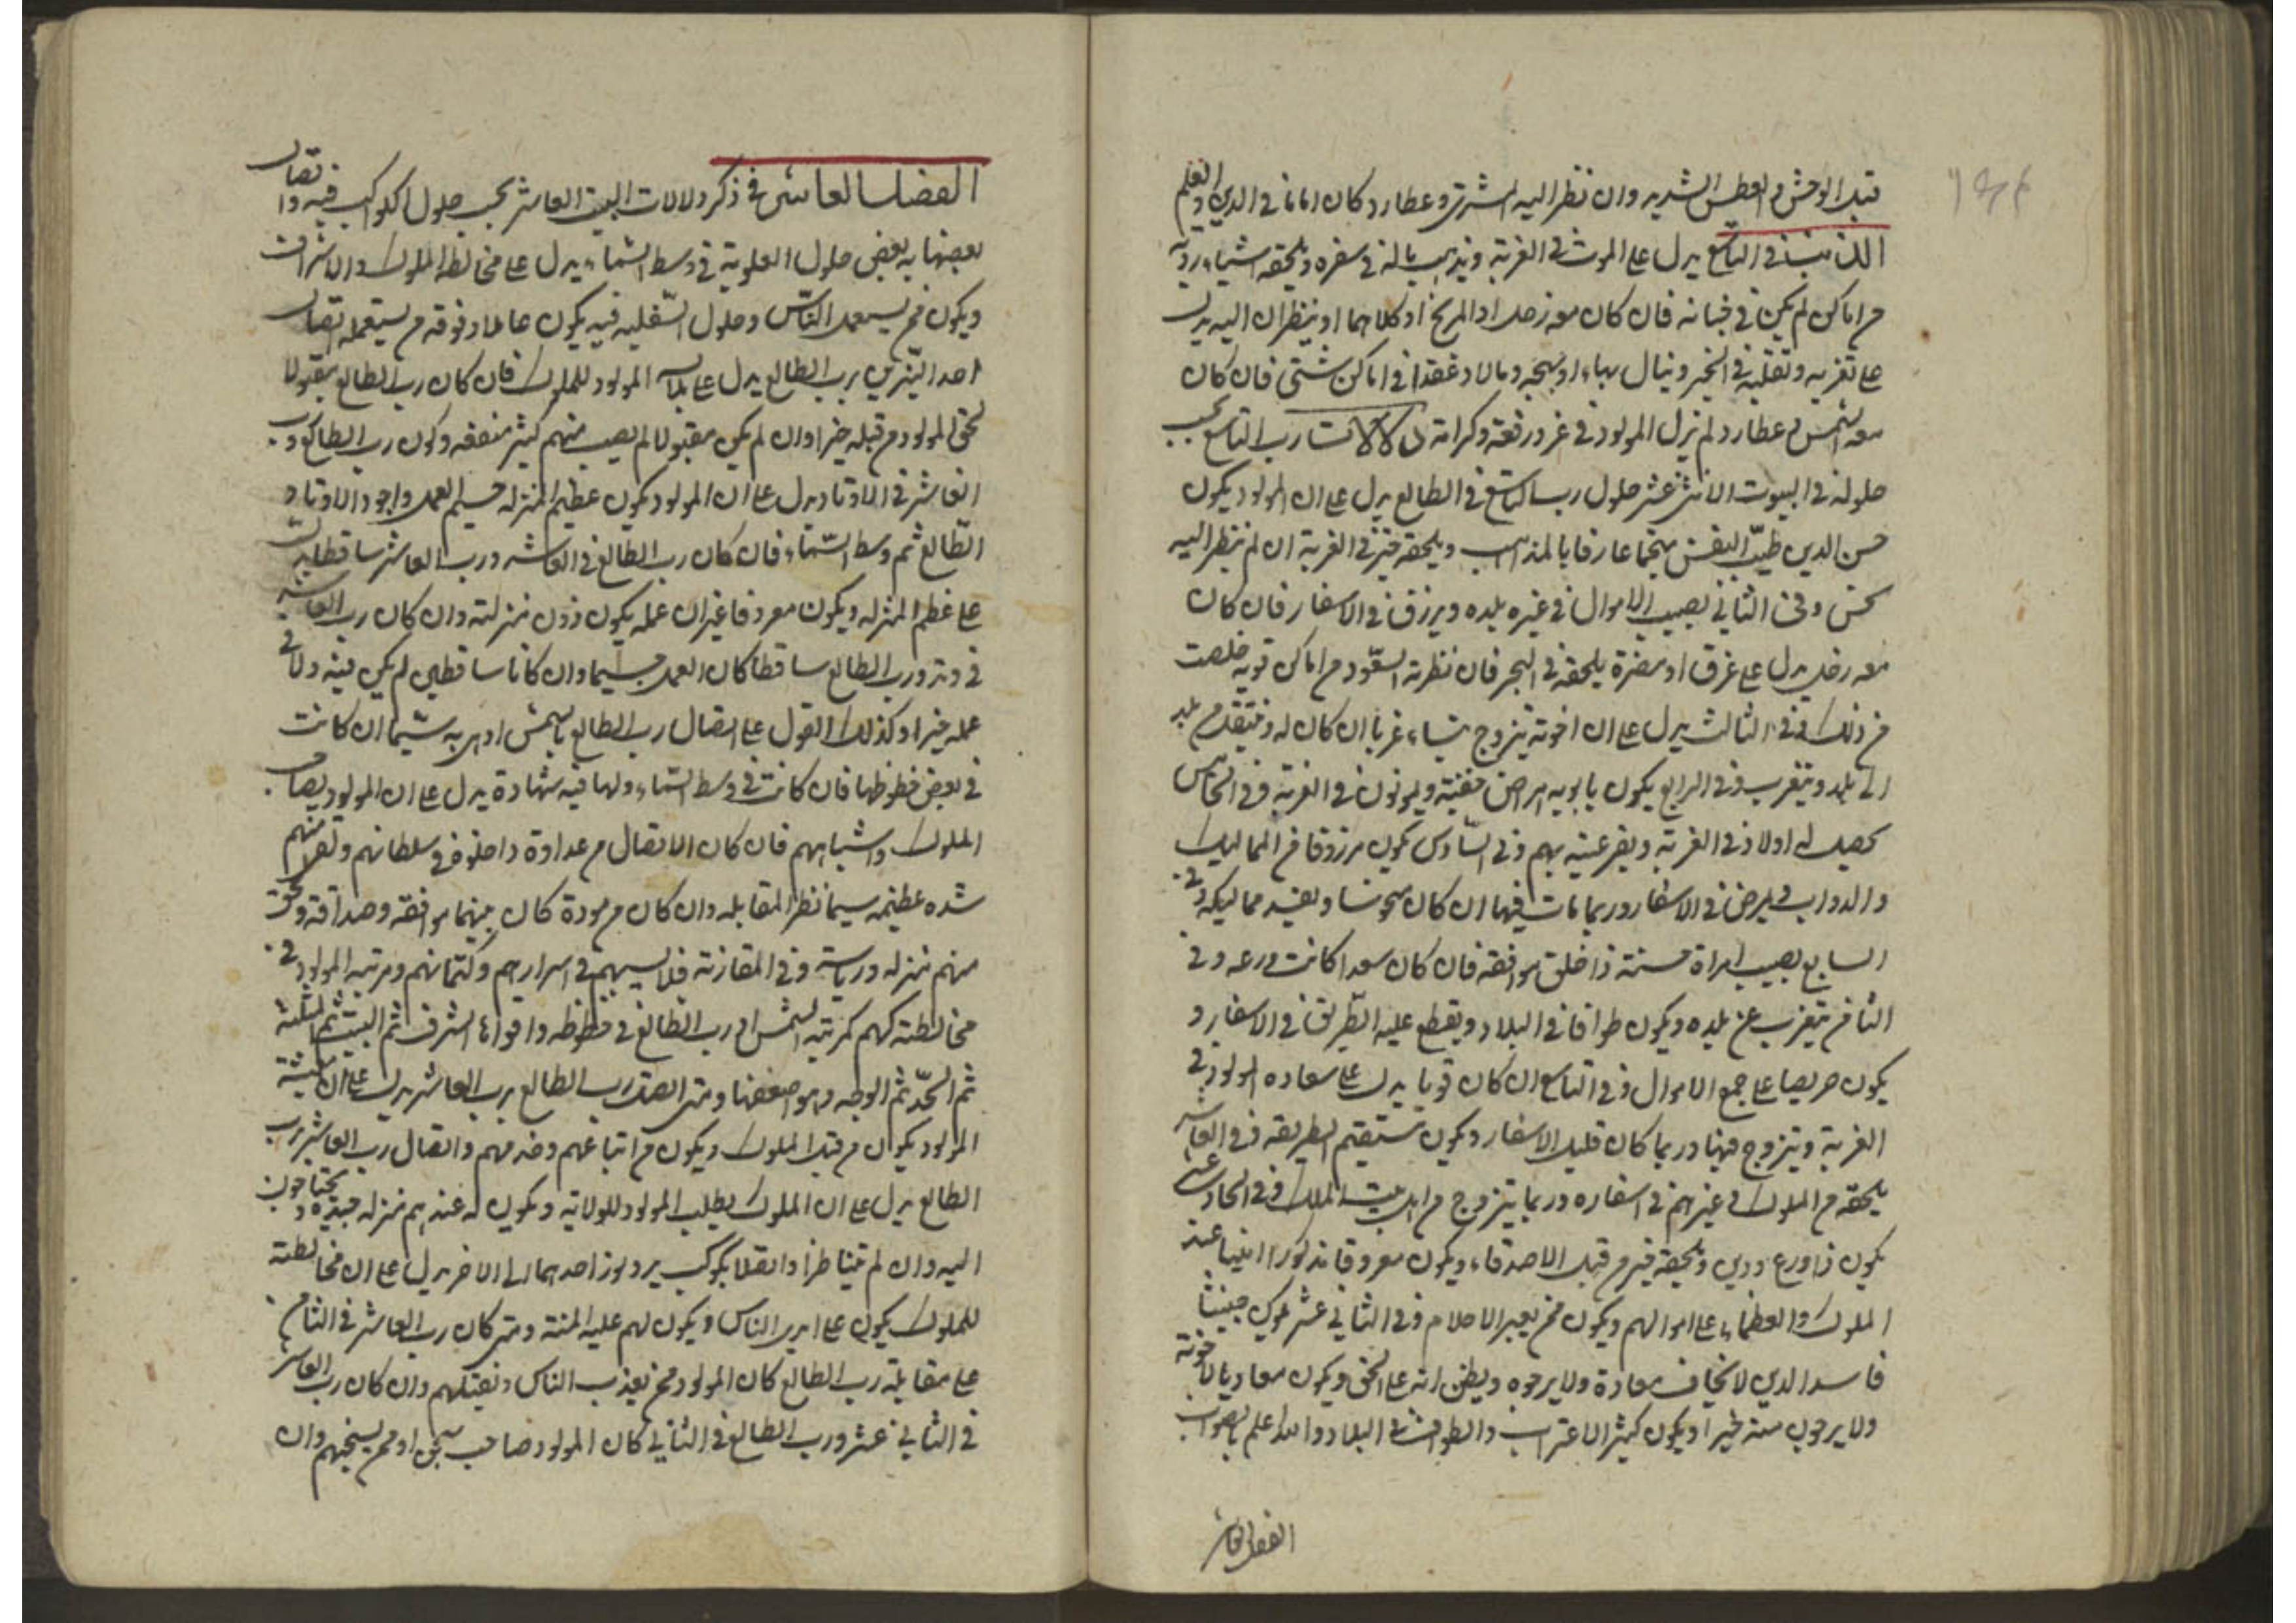 قبل الوحش والعطش الشديد وان نظر اليه المشترى وعطارد كان اماما فى الدين والعلم
الذنب فى التاسع يدل على الموت فى الغربة ويذهب ماله فى سفره ويلحقه اشياء ردية
من اماكن لم يكن فى حسابه فان كان معه زحل او المريخ او كلاهما او ينظران اليه يدل
على تغربه وتقلبه فى الخير وينال بهاء او بهجه ومالا وعقدا فى اماكن شتى فان كان
معه الشمس وعطارد لم يزل المولود فى عز ورفعة وكرامة دلالات رب التاسع بحسب
حلوله فى البيوت الاثنى عشر حلول رب التاسع فى الطالع يدل على ان المولود يكون
حسن الدين طيب النفس منجما عارفا بالمذاهب ويلحقه خير فى الغربة ان لم ينظر اليه
نحس وفى الثانى يصيب الاموال فى غير بلده ويرزق فى الاسفار فان كان
معه زحل يدل على غرق او مضرة يلحقه فى البحر فان نظرته السعود من اماكن قويه خلصت
من ذلك وفى الثالث يدل على ان اخوته يتزوج بنساء غربا ان كان له وينتقل من بلد
الى بلد ويتغرب وفى الرابع يكون بابويه امراض خفية ويموتون فى الغربة وفى الخامس
يحصل له اولاد فى الغربة ويقر عينه بهم وفى السادس يكون مرزوقا من المماليك
والدواب ويمرض فى الاسفار وربما مات فيها ان كان منحوسا ويفسد مماليكه وفى
السابع يصيب امراة حسنة ذا خلق موافقه فان كان سعدا كانت ورعه وفى
الثامن يتغرب عن بلده ويكون طوافا فى البلاد ويقطع عليه الطريق فى الاسفار و
يكون حريصا على جمع الاموال وفى التاسع ان كان قويا يدل على سعاده المولود فى
الغربة ويتزوج فيها وربما كان قليل الاسفار ويكون مستقيم الطريقه وفى العاشر
يلحقه من الملوك وغيرهم فى اسفاره وربما يتزوج من اهل بيت الملك وفى الحادى عشر
يكون ذا ورع ودين ويلحقه خير من قبل الاصدقاء ويكون معروفا مذكورا امينا عند
الملوك والعظماء على اموالهم ويكون ممن يعبر الاحلام وفى الثانى عشر يكون خبيثا
فاسد الدين لا يخاف معاده ولا يرجوه ويظن انه على الحق ويكون معاديا لاخوته
ولا يرجون منه خيرا ويكون كثير الاغتراب والطواف فى البلاد والله اعلم بالصواب
الفصل العاشر
الفصل العاشر فى ذكر دلالات البيت العاشر بحسب حلول الكواكب فيه واتصال
بعضها ببعض حلول العلوية فى وسط السماء يدل على مخالطه الملوك والاشراف
ويكون ممن يستعمل الناس وحلول السفليه فيه يكون عاملا وفوقه من يستعمله اتصال
احد النيرين برب الطالع يدل على المولود للملوك فان كان رب الطالع مقبولا
لحق المولود من قبله خيرا وان لم يكن مقبولا لم يصب منهم كثير منفعه وكون رب الطالع ورب
العاشر فى الاوتاد يدل على ان المولود يكون عظيم المنزله جسيم العمل واجود الاوتاد
الطالع ثم وسط السماء فان كان رب الطالع فى العاشر ورب العاشر ساقطا يدل
على عظم المنزله ويكون معروفا غير ان عمله يكون دون منزلته وان كان رب العاشر
فى وتد ورب الطالع ساقطا كان العمل جسيما وان كانا ساقطين لم يكن فيه ولا فى
عمله خيرا وكذلك القول على اتصال رب الطالع بالشمس او هى به سيما ان كانت
فى بعض حظوظها فان كانت فى وسط السماء ولها فيه شهادة يدل على ان المولود يصاحب
الملوك واشباههم فان كان الاتصال من عداوة داخلوه فى سلطانهم ولقى منهم
شده عظيمه سيما نظر المقابله وان كان من مودة كان بينهما موافقه وصداقه ولحق
منهم منزله ورياسة وفى المقارنة فلابسهم فى اسرارهم وكتمانهم ومرتبه المولود فى
مخالطته لهم كمرتبه الشمس او رب الطالع فى حظوظه واقواها الشرف ثم البيت ثم المثلثة
ثم الحد ثم الوجه وهو اضعفها ومتى اتصل رب الطالع برب العاشر يدل على ان معيشة
المولود يكون من قبل الملوك ويكون من اتباعهم وخدمهم واتصال رب العاشر برب
الطالع يدل على ان الملوك يطلب المولود للولايه ويكون له عندهم منزله جيده ويحتاجون
اليه وان لم يتناظرا واتصلا بكوكب يرد نور احدهما الى الاخر يدل على ان مخالطته
للملوك يكون على ايدى الناس ويكون لهم عليه المنة ومتى كان رب العاشر فى الثامن
على مقابلة رب الطالع كان المولود ممن يعذب الناس ويقتلهم وان كان رب العاشر
فى الثانى عشر ورب الطالع فى الثانى كان المولود صاحب سجن او ممن يسجنهم وان